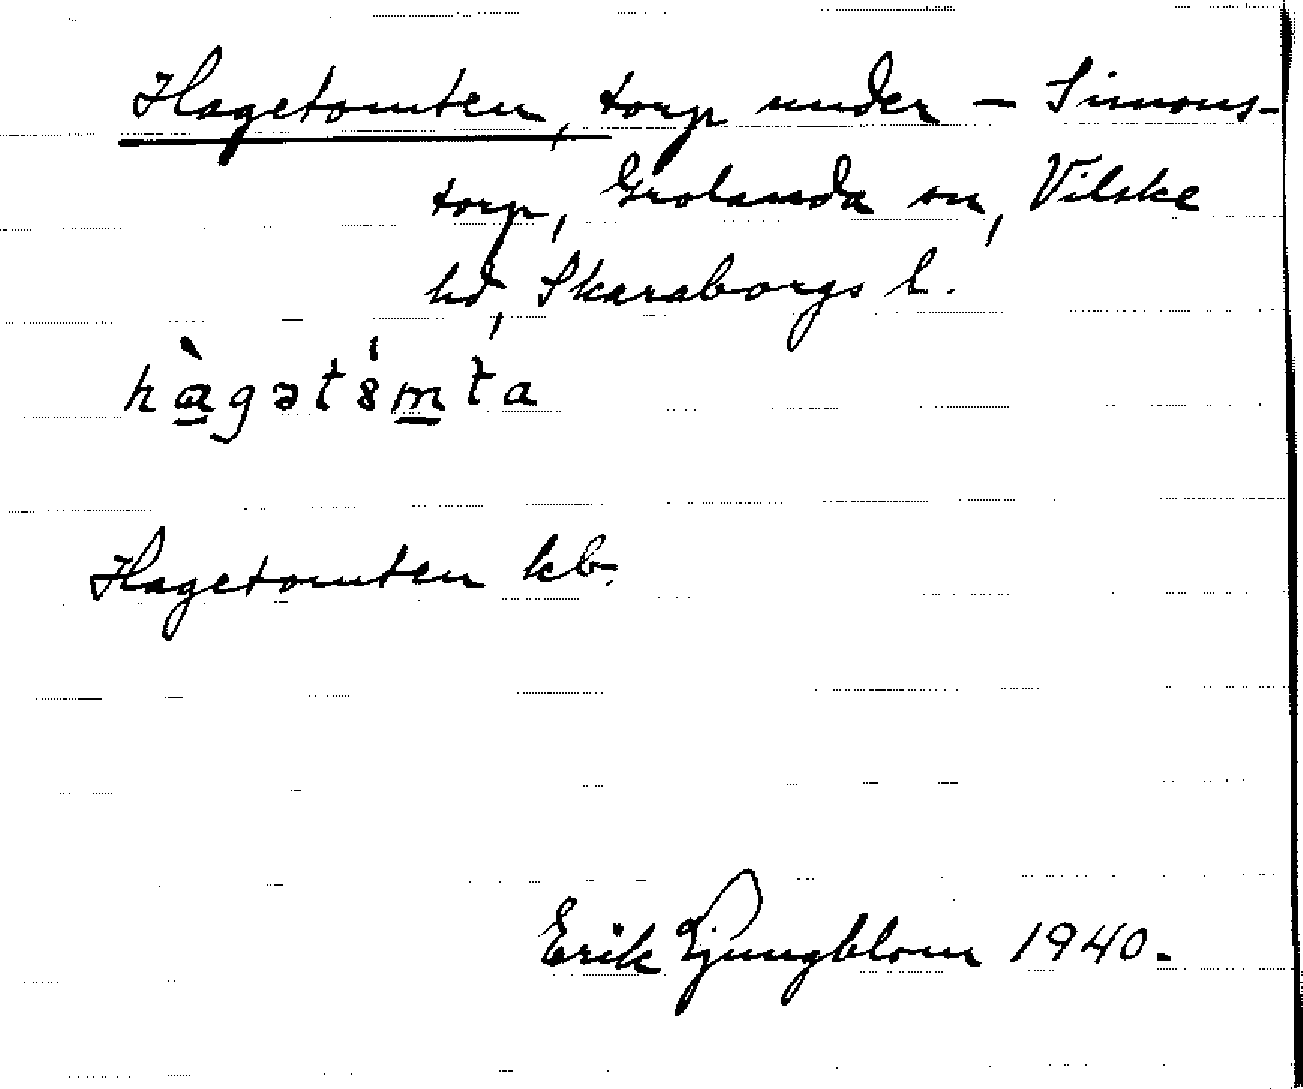 Hagetomten, torp under – Simons-
torp, Grolanda sn, Vilske
hd, Skaraborgs l.
hàgət8́mta
Hagetomten kb.
Erik Ljungblom 1940.